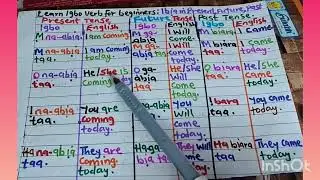 Learn Igbo Verb for beginners: Ibịa in Present, Future, Past
Present Tense
Future Tense
Past Tense
Igbo
English
Igbo
English
Igbo
English
M na-abịa
taa.
I am coming
today.
M ga-
abịa
taa.
I will
come
today.
M bịara
taa.
I came
today.
Ọ na-abịa
taa.
He/She is
coming
Ọ ga-
abịa
taa.
He/She
will
come
today.
Ọ bịara
taa.
He/She
came
today.
Ị na-abịa
taa.
You are
coming
today.
You
will
come
today.
Ị bịara
taa.
You came
today.
Ha na-abịa
taa.
They are
coming
today.
Ha ga-
abịa taa
They
will
come
today.
Ha bịara
taa.
They came
today.
InShOt